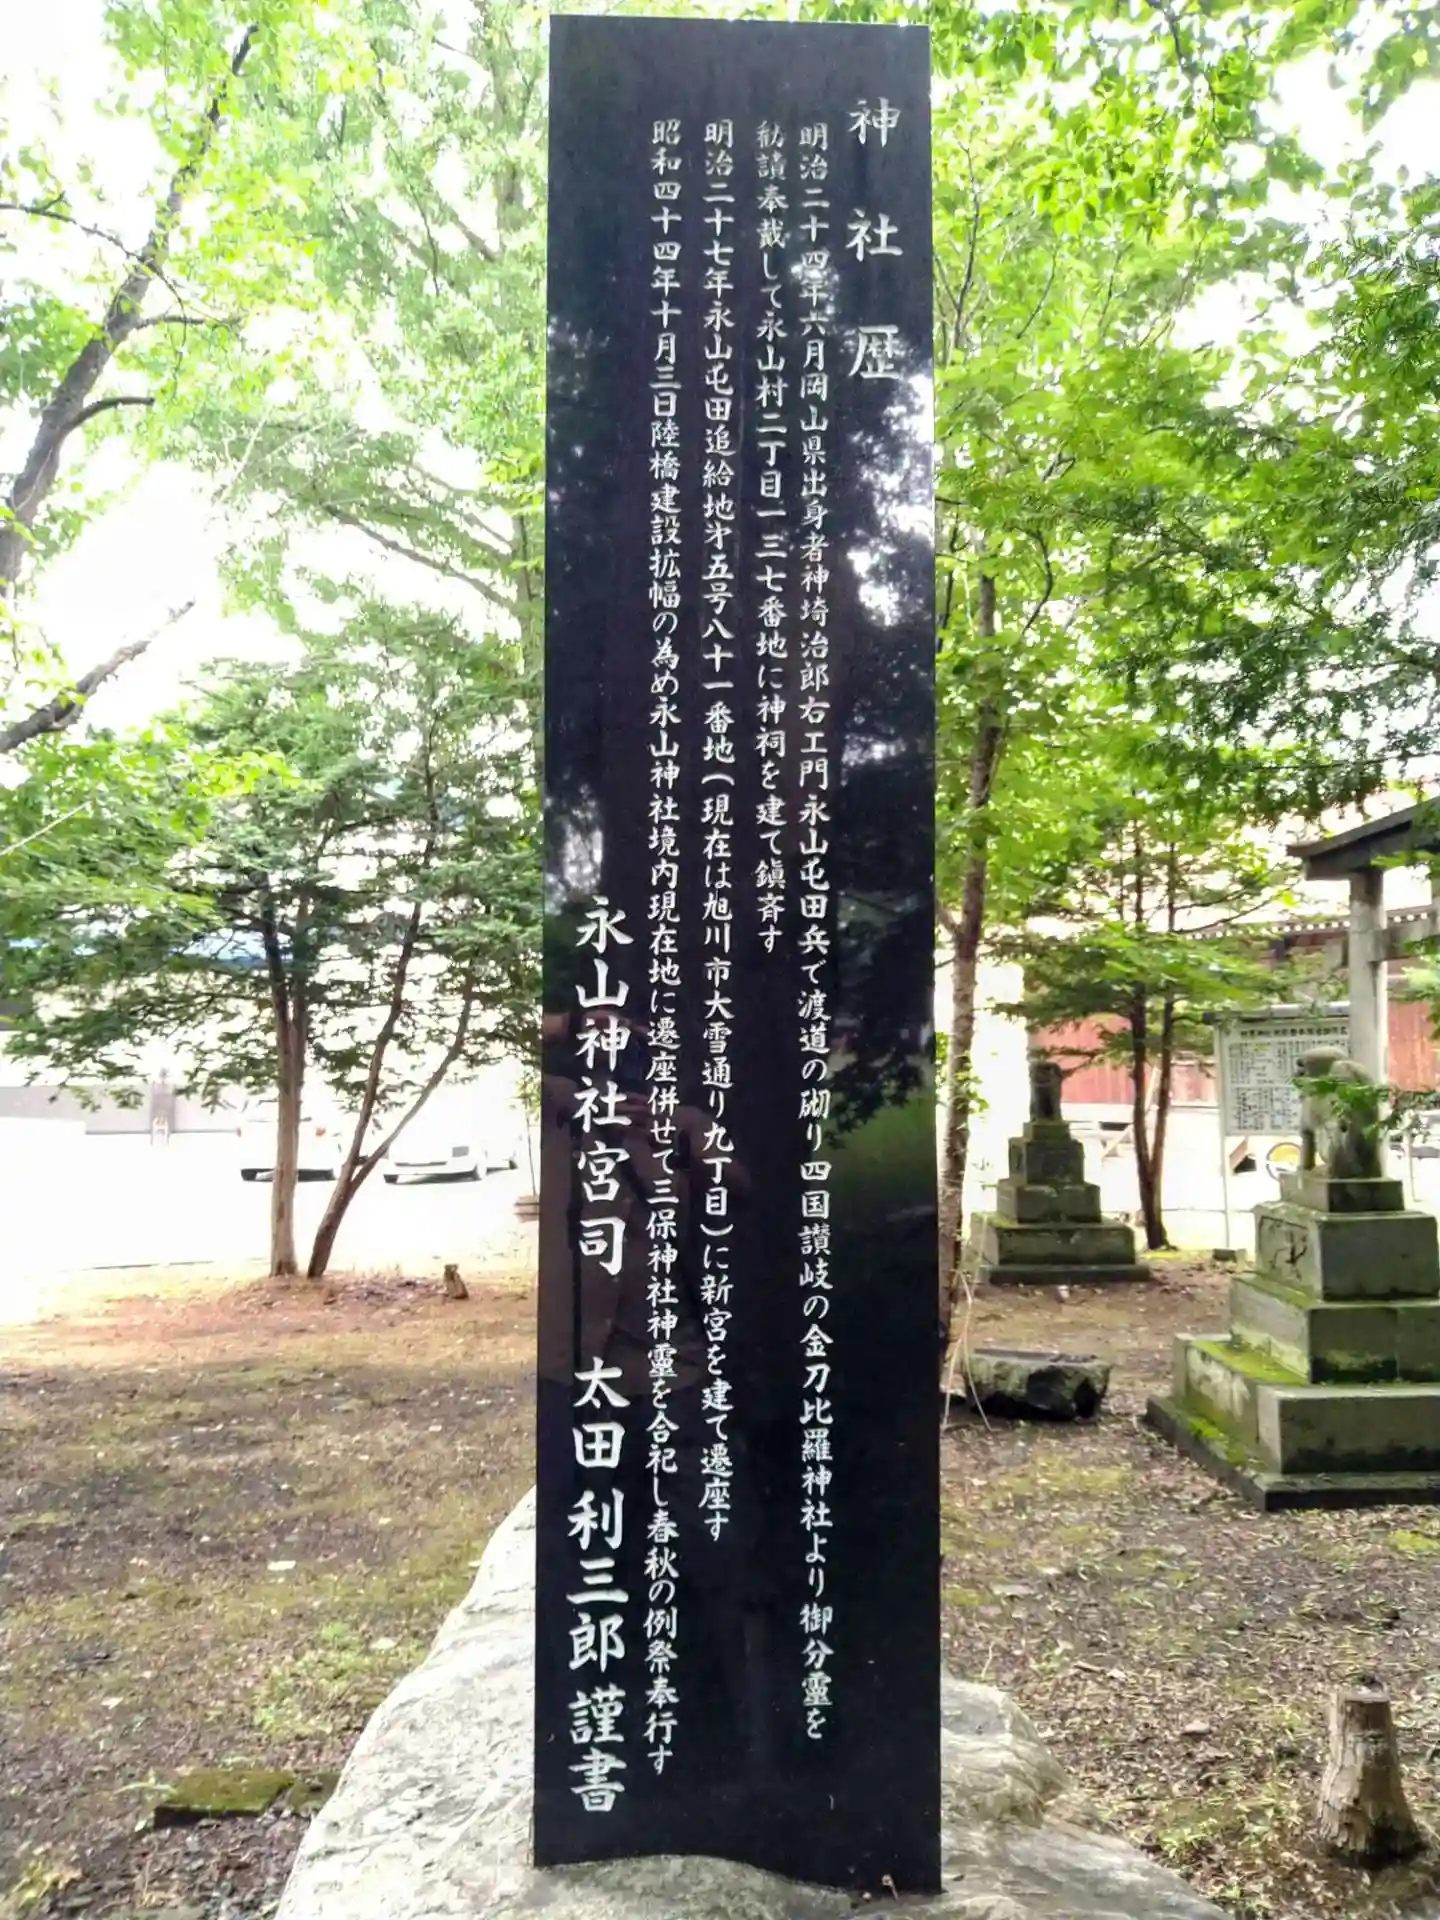 神社歴
明治二十四年六月岡山県出身者神埼治郎右工門永山屯田兵で渡道の砌り四国讃岐の金刀比羅神社より御分靈を
勧請奉戴して永山村二丁目一三七番地に神祠を建て鎭斉す
明治二十七年永山屯田追給地㐧五号八十一番地(現在は旭川市大雪通り九丁目)に新宮を建て遷座す
昭和四十四年十月三日陸橋建設拡幅の為め永山神社境内現在地に遷座併せて三保神社神靈を合祀し春秋の例祭奉行す
永山神社宮司　太田利三郎謹書